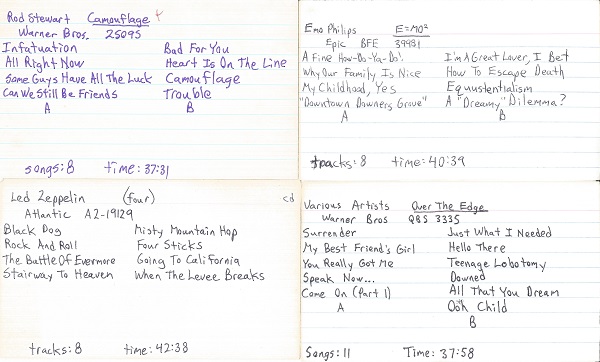 Rod Stewart Camouflage
Warner Bros. 25095
Infatuation Bad For You
All Right Now Heart Is On The Line
Some Guys Have All The Luck Camouflage
Can We Still Be Friends Trouble
A B
songs: 8 time: 37:31
Emo Philips E=MO²
Epic BFE 39981
A Fine How-Do-Ya-Do! I'm A Great Lover, I Bet
Why Our Family Is Nice How To Escape Death
My Childhood, Yes Equustentialism
"Downtown Downers Grove" A "Dreamy" Dilemma?
A B
tracks: 8 time: 40:39
Led Zeppelin (four) cd
Atlantic A2-19129
Black Dog Misty Mountain Hop
Rock And Roll Four Sticks
The Battle Of Evermore Going To California
Stairway To Heaven When The Levee Breaks
tracks: 8 time: 42:38
Various Artists Over The Edge
Warner Bros QBS 3335
Surrender Just What I Needed
My Best Friend's Girl Hello There
You Really Got Me Teenage Lobotomy
Speak Now... Downed
Come On (Part 1) All That You Dream
A Ooh Child
B
Songs: 11 Time: 37:58